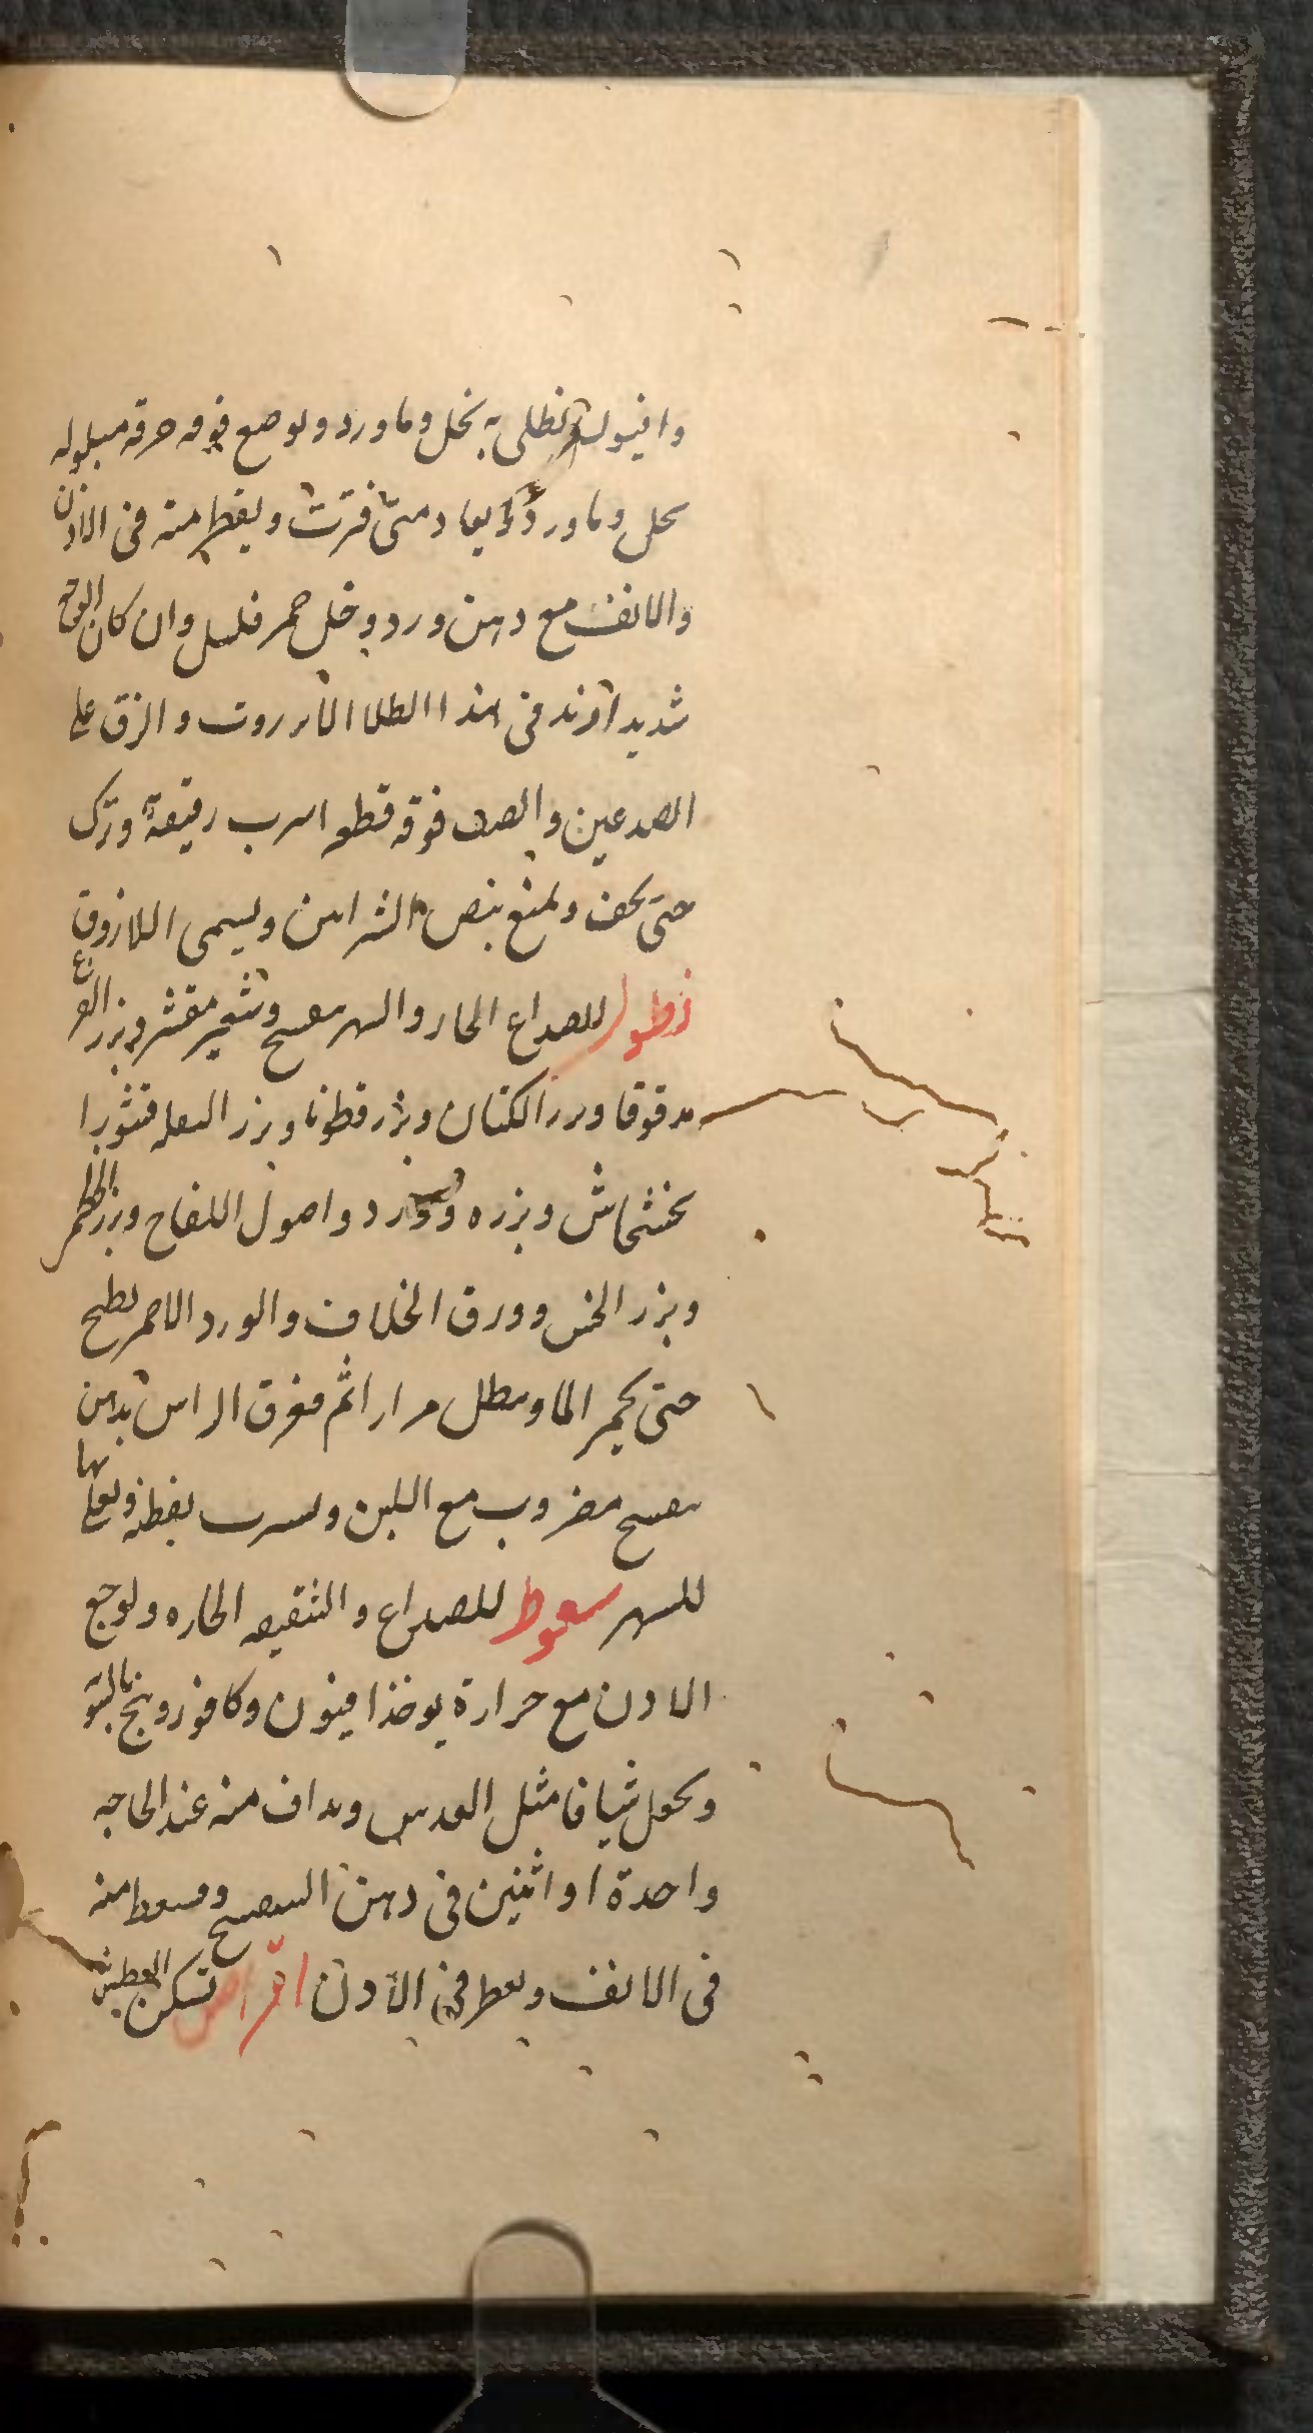 وافيون ويطلى به بخل وماورد ويوضع فوقه خرقه مبلوله
بخل وماورد يعاد متى فترت ويقطر منه في الاذن
والانف مع دهن ورد وخل خمر قليل وان كان الوجع
شديدا زد في هذا الطلا الانزروت والزق على
الصدعين والصق فوقه قطعه اسرب رقيقة وترك
حتى يجف ويمنع نبض الشرايين ويسمى اللازوق
نطول للصداع الحار والسهر بنفسج وشعير مقشر وبزر القرع
مدقوقا وبزر الكتان وبزر قطونا وبزر البقله قشورا
بخشخاش وبزره وورد واصول اللفاح وبزر
وبزر الخس وورق الخلاف والورد الاحمر يطبخ
حتى يحمر الما وينطل مرارا ثم يغرق الراس بدهن
بنفسج مضروب مع اللبن ويشرب بقطنه ويعلى بها
للسهر سعوط للصداع والشقيقه الحاره ولوجع
الاذن مع حرارة يوخذ افيون وكافور وبنج بالسوا
ويجعل شيافا مثل العدس ويداف منه عند الحاجه
واحدة او اثنين في دهن البنفسج ويسعط منه
في الانف ويقطر في الاذن اقراص تسكن العطش